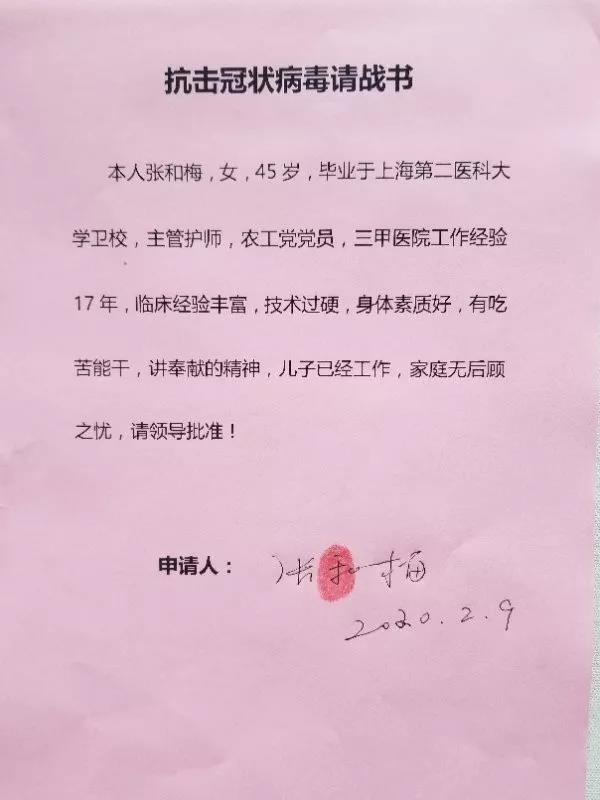 抗击冠状病毒请战书
本人张和梅，女，45岁，毕业于上海第二医科大
学卫校，主管护师，农工党党员，三甲医院工作经验
17年，临床经验丰富，技术过硬，身体素质好，有吃
苦能干，讲奉献的精神，儿子已经工作，家庭无后顾
之忧，请领导批准！
申请人：张和梅
2020.2.9